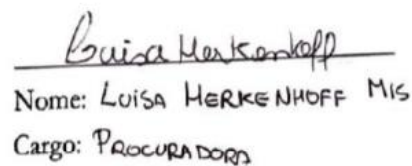 Luisa Herkenhoff
Nome: LUISA HERKENHOFF MIS
Cargo: PROCURADORA